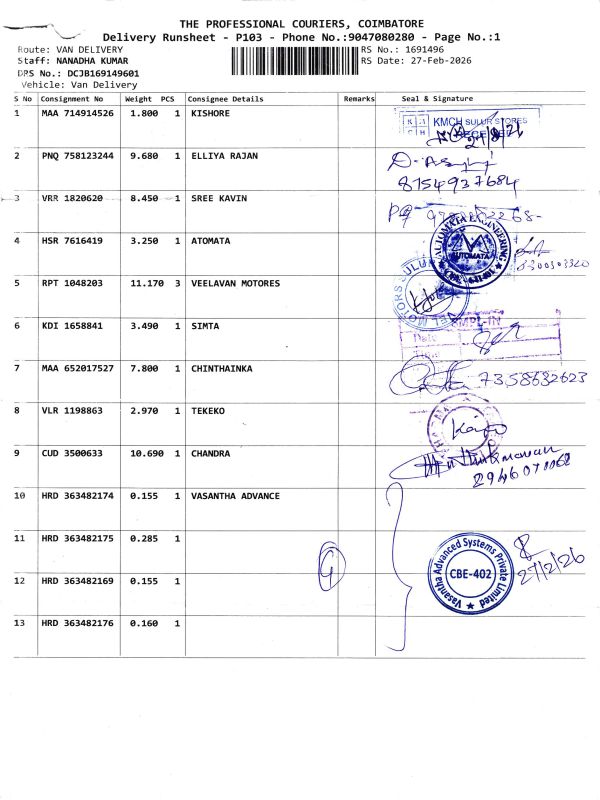 THE PROFESSIONAL COURIERS, COIMBATORE
Delivery Runsheet - P103 - Phone No.:9047080280 - Page No.:1
Route: VAN DELIVERY
RS No.: 1691496
Staff: NANADHA KUMAR
RS Date: 27-Feb-2026
DRS No.: DCJB169149601
Vehicle: Van Delivery
S No Consignment No Weight PCS Consignee Details Remarks Seal & Signature
1 MAA 714914526 1.800 1 KISHORE
KMCH SULUR STORES
2 PNQ 758123244 9.680 1 ELLIYA RAJAN
8754937684
3 VRR 1820620 8.450 1 SREE KAVIN
4 HSR 7616419 3.250 1 ATOMATA
AUTOMATA ENGINEERING
AUTOMATA
5 RPT 1048203 11.170 3 VEELAVAN MOTORES
MOTORS SULUR
6 KDI 1658841 3.490 1 SIMTA
Date
Time
7 MAA 652017527 7.800 1 CHINTHAINKA
7358632623
8 VLR 1198863 2.970 1 TEKEKO
9 CUD 3500633 10.690 1 CHANDRA
10 HRD 363482174 0.155 1 VASANTHA ADVANCE
11 HRD 363482175 0.285 1
Vasantha Advanced Systems Private Limited
CBE-402
27/2/26
12 HRD 363482169 0.155 1
13 HRD 363482176 0.160 1